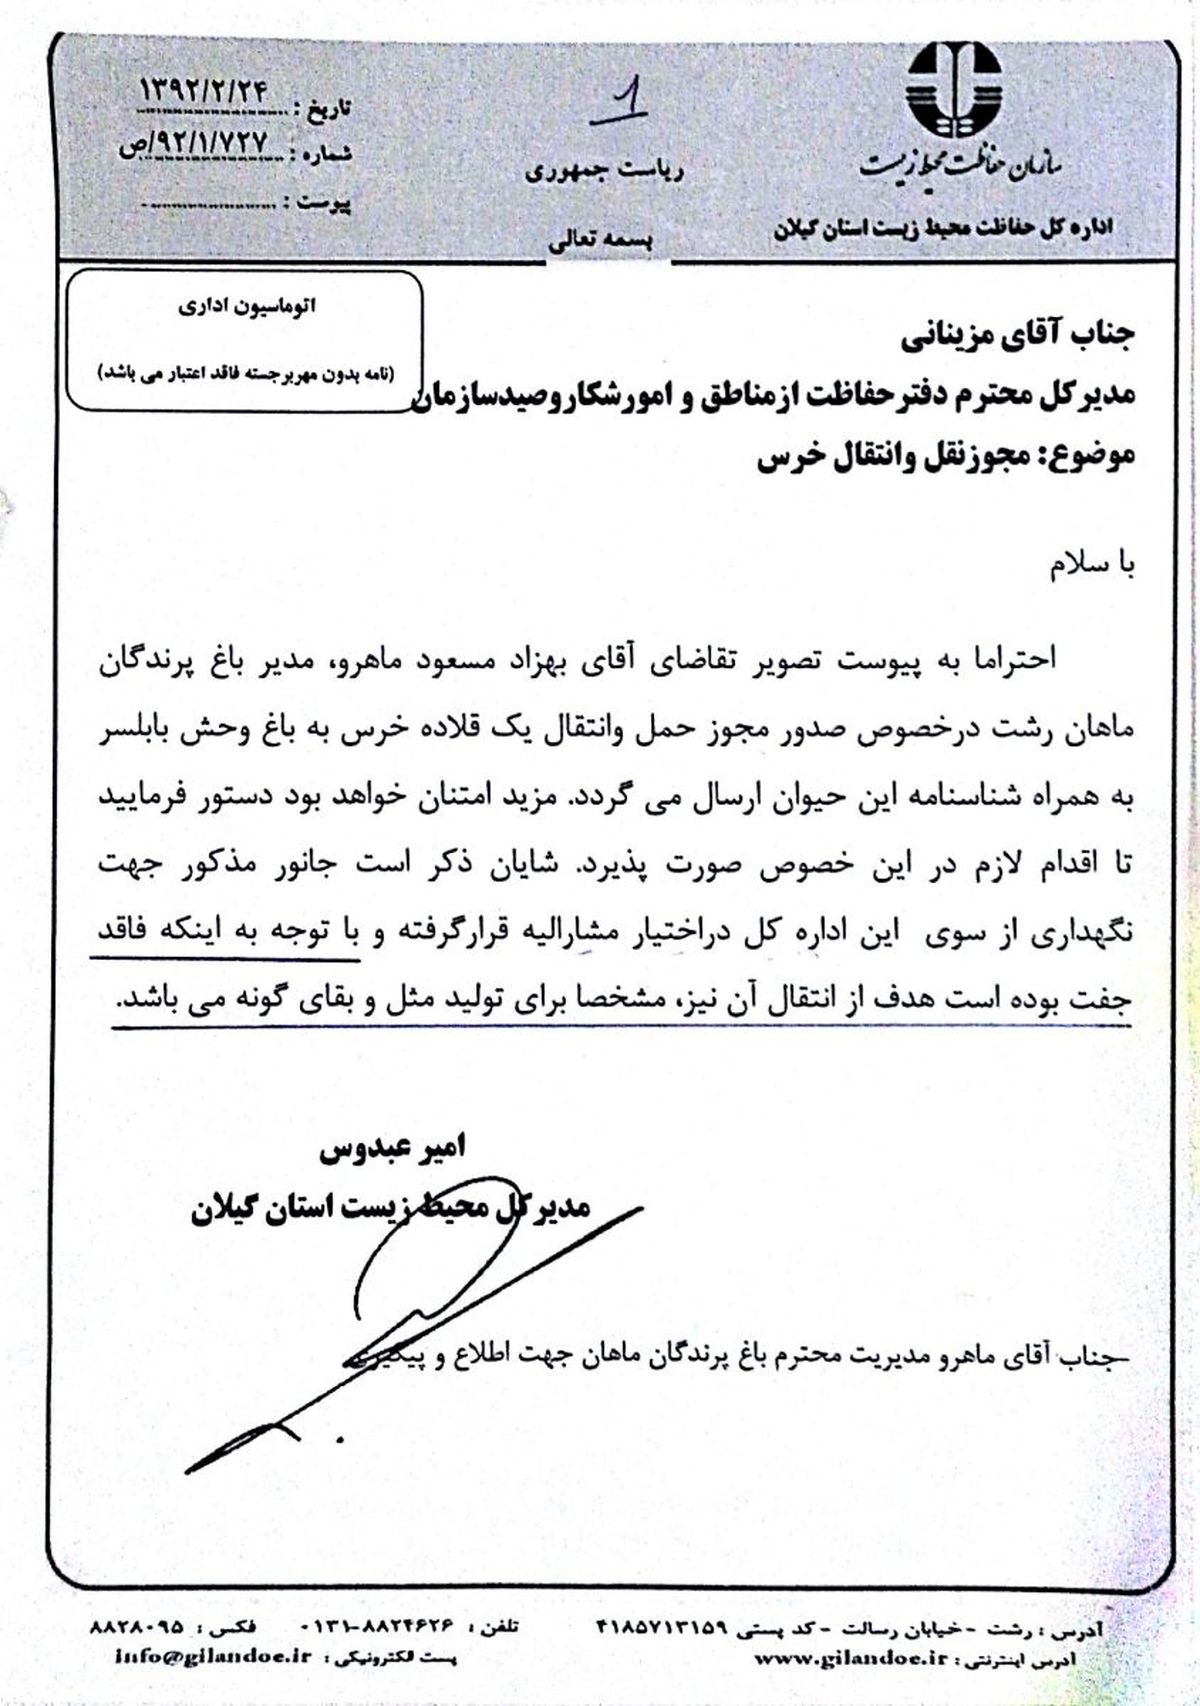 سازمان حفاظت محیط زیست
اداره کل حفاظت محیط زیست استان گیلان
۱
ریاست جمهوری
بسمه تعالی
تاریخ : ۱۳۹۲/۲/۲۴
شماره : ۹۲/۱/۷۲۷/ص
پیوست : -
اتوماسیون اداری
(نامه بدون مهربرجسته فاقد اعتبار می باشد)
جناب آقای مزینانی
مدیرکل محترم دفترحفاظت ازمناطق و امورشکاروصیدسازمان
موضوع: مجوزنقل وانتقال خرس
با سلام
احتراما به پیوست تصویر تقاضای آقای بهزاد مسعود ماهرو، مدیر باغ پرندگان
ماهان رشت درخصوص صدور مجوز حمل وانتقال یک قلاده خرس به باغ وحش بابلسر
به همراه شناسنامه این حیوان ارسال می گردد. مزید امتنان خواهد بود دستور فرمایید
تا اقدام لازم در این خصوص صورت پذیرد. شایان ذکر است جانور مذکور جهت
نگهداری از سوی این اداره کل دراختیار مشارالیه قرارگرفته و با توجه به اینکه فاقد
جفت بوده است هدف از انتقال آن نیز، مشخصا برای تولید مثل و بقای گونه می باشد.
امیر عبدوس
مدیرکل محیط زیست استان گیلان
-جناب آقای ماهرو مدیریت محترم باغ پرندگان ماهان جهت اطلاع و پیگیری
آدرس : رشت - خیابان رسالت - کد پستی ۴۱۸۵۷۱۳۱۵۹ تلفن : ۸۸۲۴۶۲۶-۰۱۳۱ فکس : ۸۸۲۸۰۹۵
آدرس اینترنتی : www.gilandoe.ir پست الکترونیکی : info@gilandoe.ir